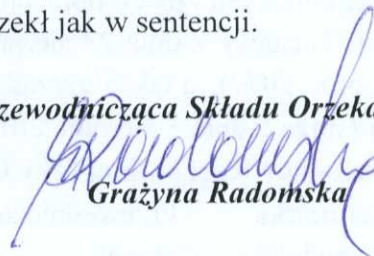 zekł jak w sentencji.
zewodnicząca Składu Orzeka
Grażyna Radomska